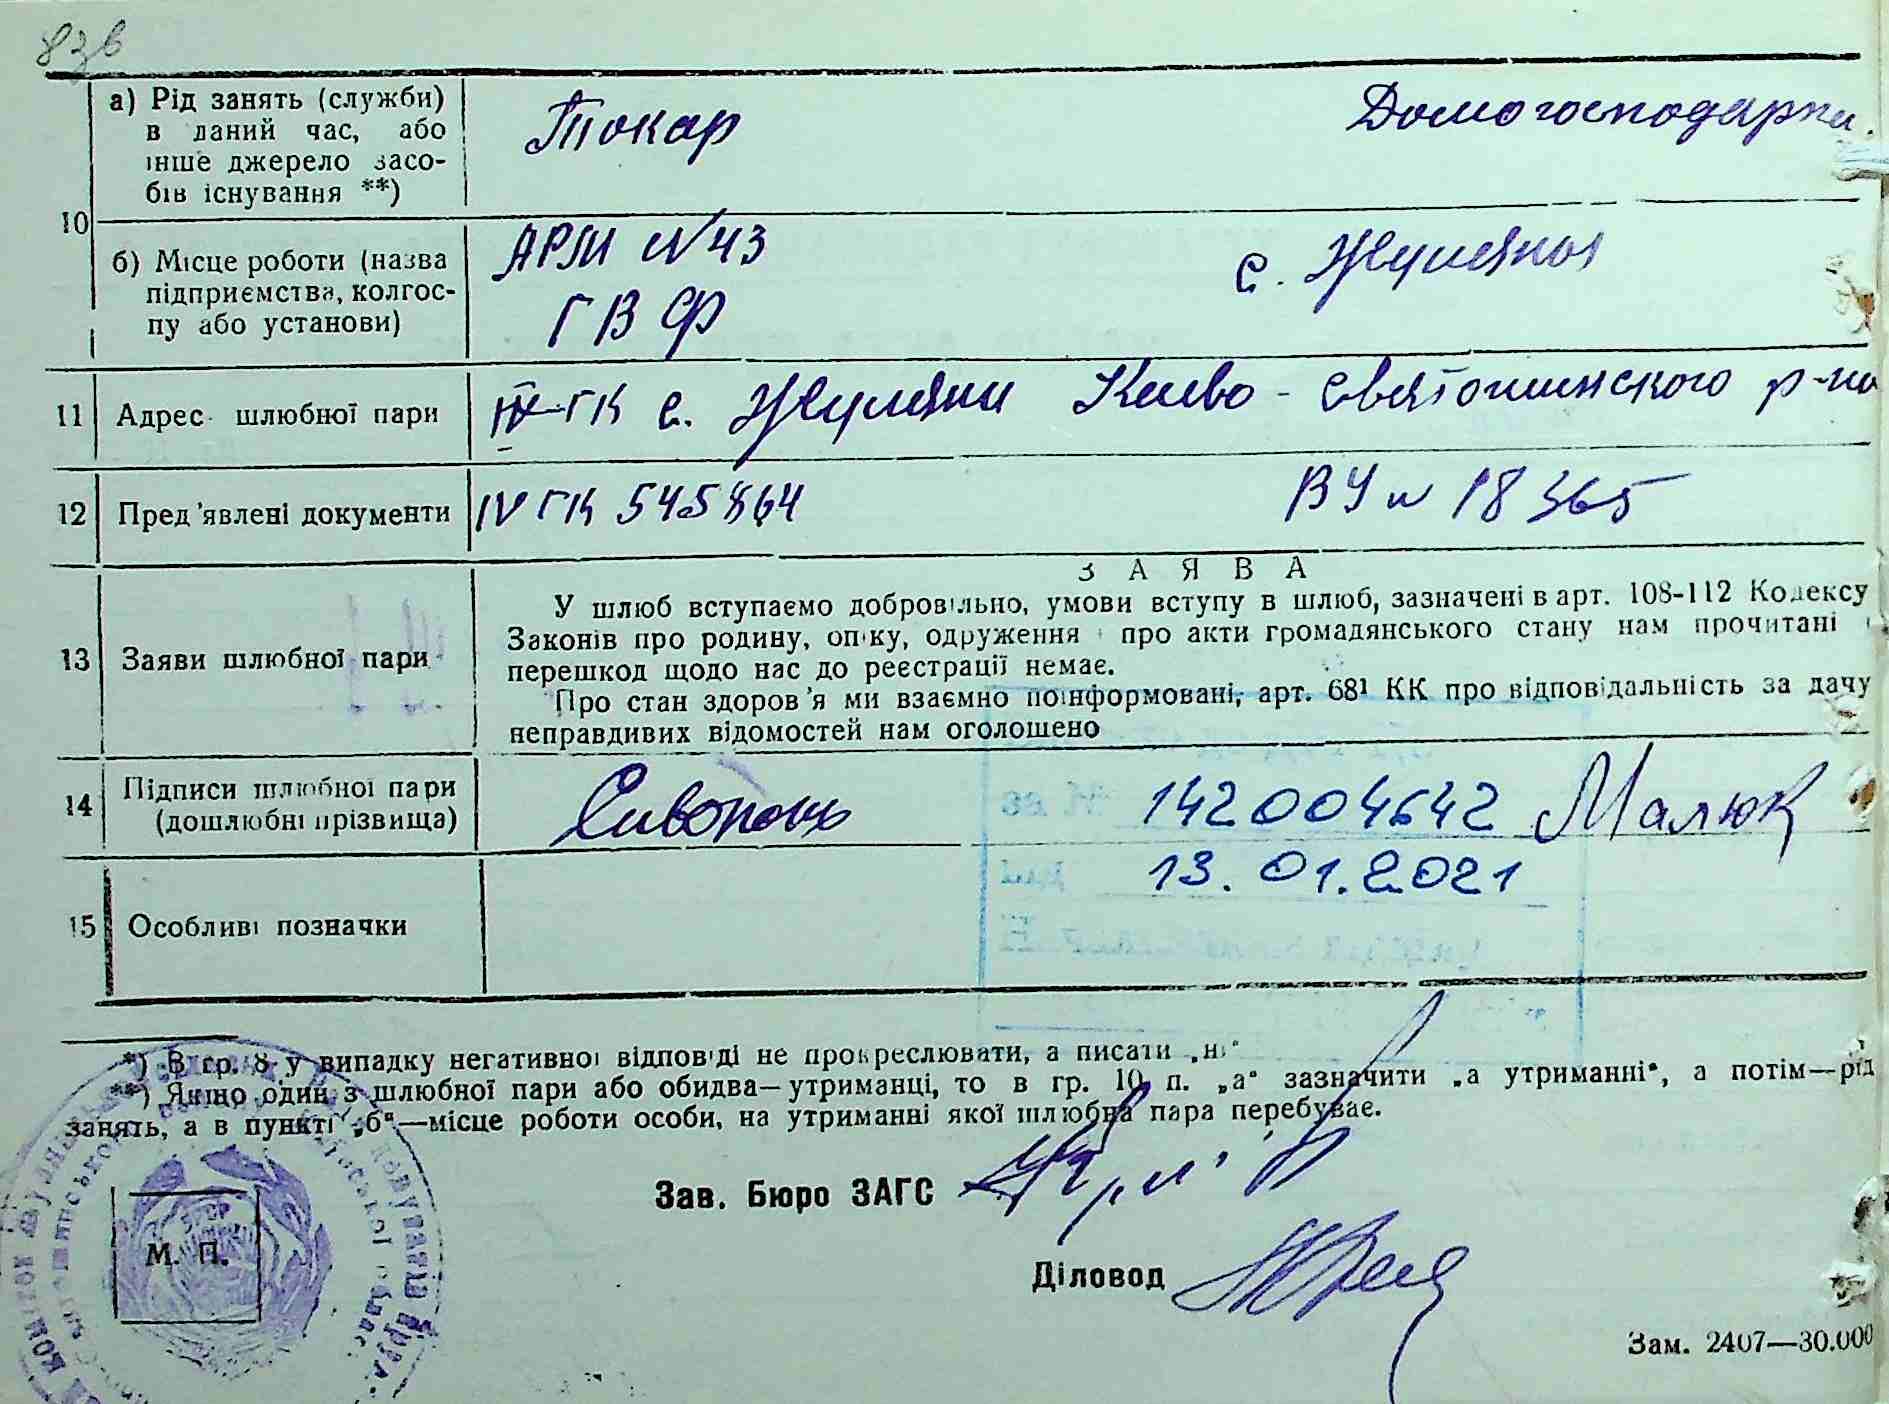 83в
10
а) Рід занять (служби) в даний час, або інше джерело засобів існування **)
Токар
Домогосподарка
б) Місце роботи (назва підприємства, колгоспу або установи)
АРМ №43
ГВФ
с. Жуляны
11 Адрес шлюбної пари
с. Жуляни Києво-Святошинского р-на
12 Пред'явлені документи IV ГК 545864 ВУ № 18365
ЗАЯВА
У шлюб вступаємо добровільно, умови вступу в шлюб, зазначені в арт. 108-112 Кодексу
13 Заяви шлюбної пари
Законів про родину, опіку, одруження і про акти громадянського стану нам прочитані і
перешкод щодо нас до реєстрації немає.
Про стан здоров'я ми взаємно поінформовані, арт. 68¹ КК про відповідальність за дачу
неправдивих відомостей нам оголошено
14 Підписи шлюбної пари
(дошлюбні прізвища)
Сивоконь
142004642 Малюк
13.01.2021
15 Особливі позначки
*) В гр. 8 у випадку негативної відповіді не прокреслювати, а писати „ні“
**) Якщо один з шлюбної пари або обидва—утриманці, то в гр. 10 п. „а“ зазначити „а утриманні“, а потім—рід
занять, а в пункті „б“—місце роботи особи, на утриманні якої шлюбна пара перебуває.
Зав. Бюро ЗАГС
М. П.
Діловод
Зам. 2407—30.000